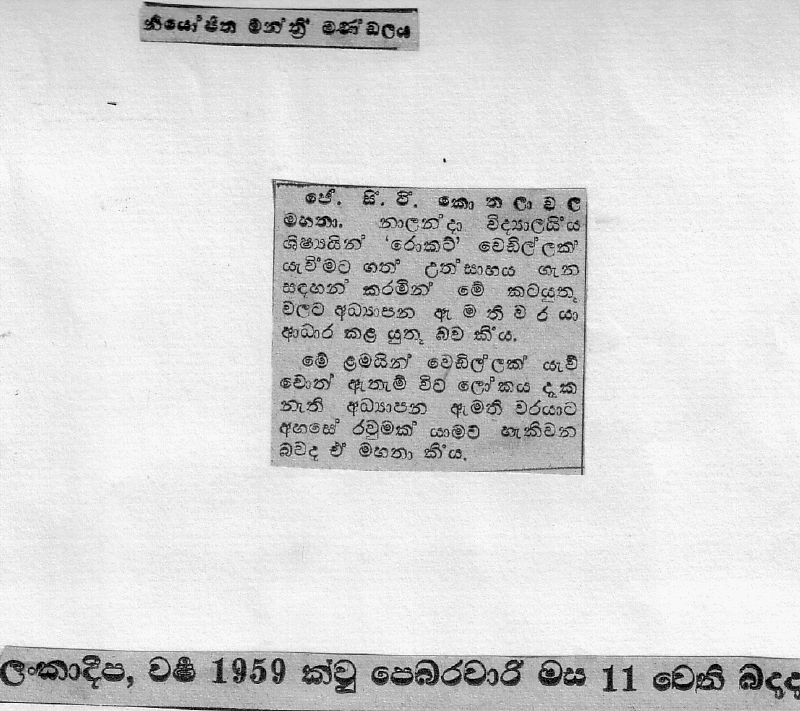 නියෝජිත මන්ත්‍රී මණ්ඩලය
ජේ. සී. ටී. කොතලාවල
මහතා. නාලන්දා විද්‍යාලයීය
ශිෂ්‍යයින් ‘රොකට්’ වෙඩිල්ලක්
යැවීමට ගත් උත්සාහය ගැන
සඳහන් කරමින් මේ කටයුතු
වලට අධ්‍යාපන ඇමතිවරයා
ආධාර කළ යුතු බව කීය.
මේ ළමයින් වෙඩිල්ලක් යැව්
වොත් ඇතැම් විට ලෝකය දැක
නැති අධ්‍යාපන ඇමතිවරයාට
අහසේ රවුමක් යාමට හැකිවන
බවද ඒ මහතා කීය.
ලංකාදීප, වර්ෂ 1959 ක්වූ පෙබරවාරි මස 11 වෙනි බදාදා